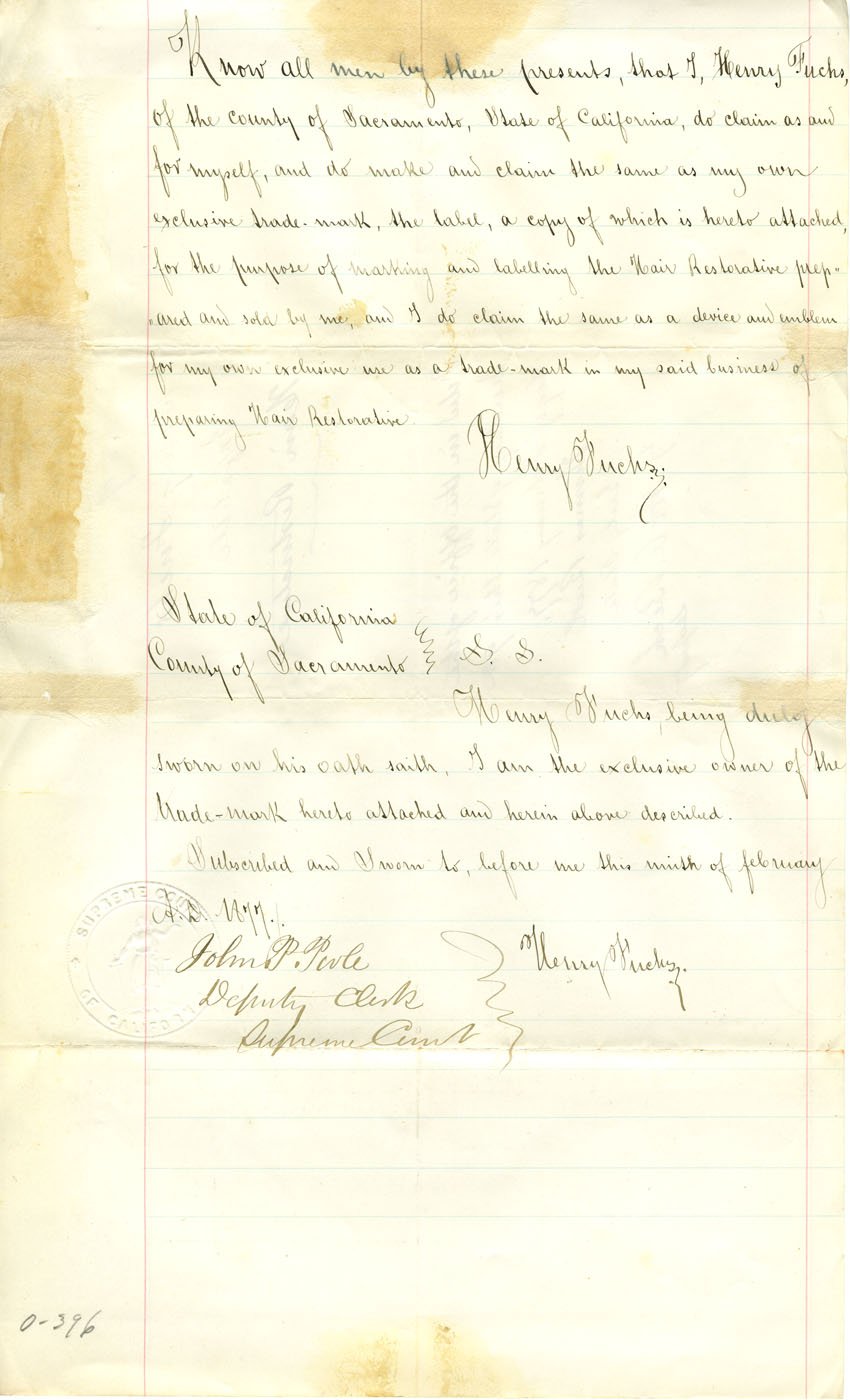 Know all men by these presents, that I, Henry Fuchs,
of the county of Sacramento, State of California, do claim as and
for myself, and do make and claim the same as my own
exclusive trade-mark, the label, a copy of which is hereto attached,
for the purpose of marking and labelling the Hair Restorative prep-
ared and sold by me, and I do claim the same as a device and emblem
for my own exclusive use as a trade-mark in my said business of
preparing Hair Restorative.
Henry Fuchs.
State of California
County of Sacramento } S. S.
Henry Fuchs, being duly
sworn on his oath saith, I am the exclusive owner of the
trade-mark hereto attached and herein above described.
Subscribed and Sworn to, before me this ninth of february
A.D. 1877.
John P. Poole } Henry Fuchs.
Deputy Clerk
Supreme Court
SUPREME COURT
OF CALIFORNIA
0-396